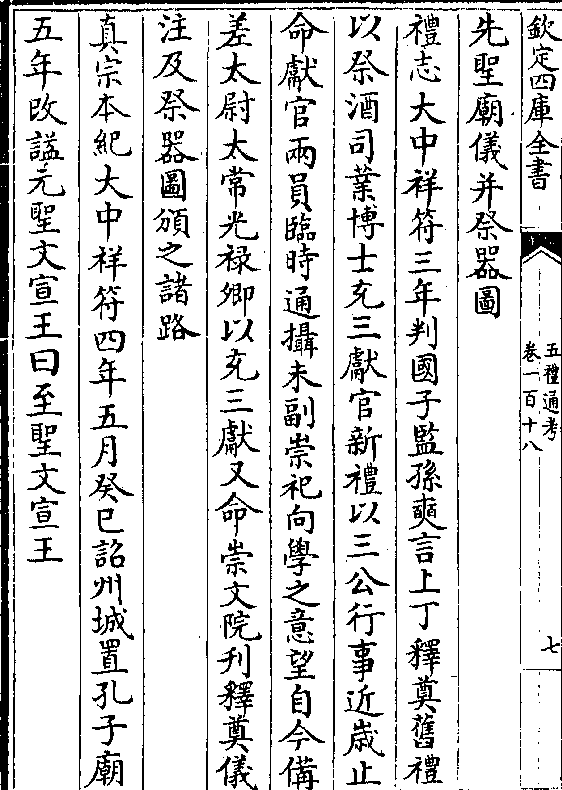 欽定四庫全書
五禮通考
卷一百十八
七
先聖廟儀并祭器圖
禮志大中祥符三年判國子監孫奭言上丁釋奠舊禮
以祭酒司業博士充三獻官新禮以三公行事近歲止
命獻官兩員臨時通攝未副崇祀向學之意望自今備
差太尉太常光禄卿以充三獻又命崇文院刋釋奠儀
注及祭器圖頒之諸路
真宗本紀大中祥符四年五月癸巳詔州城置孔子廟
五年改謚元聖文宣王曰至聖文宣王